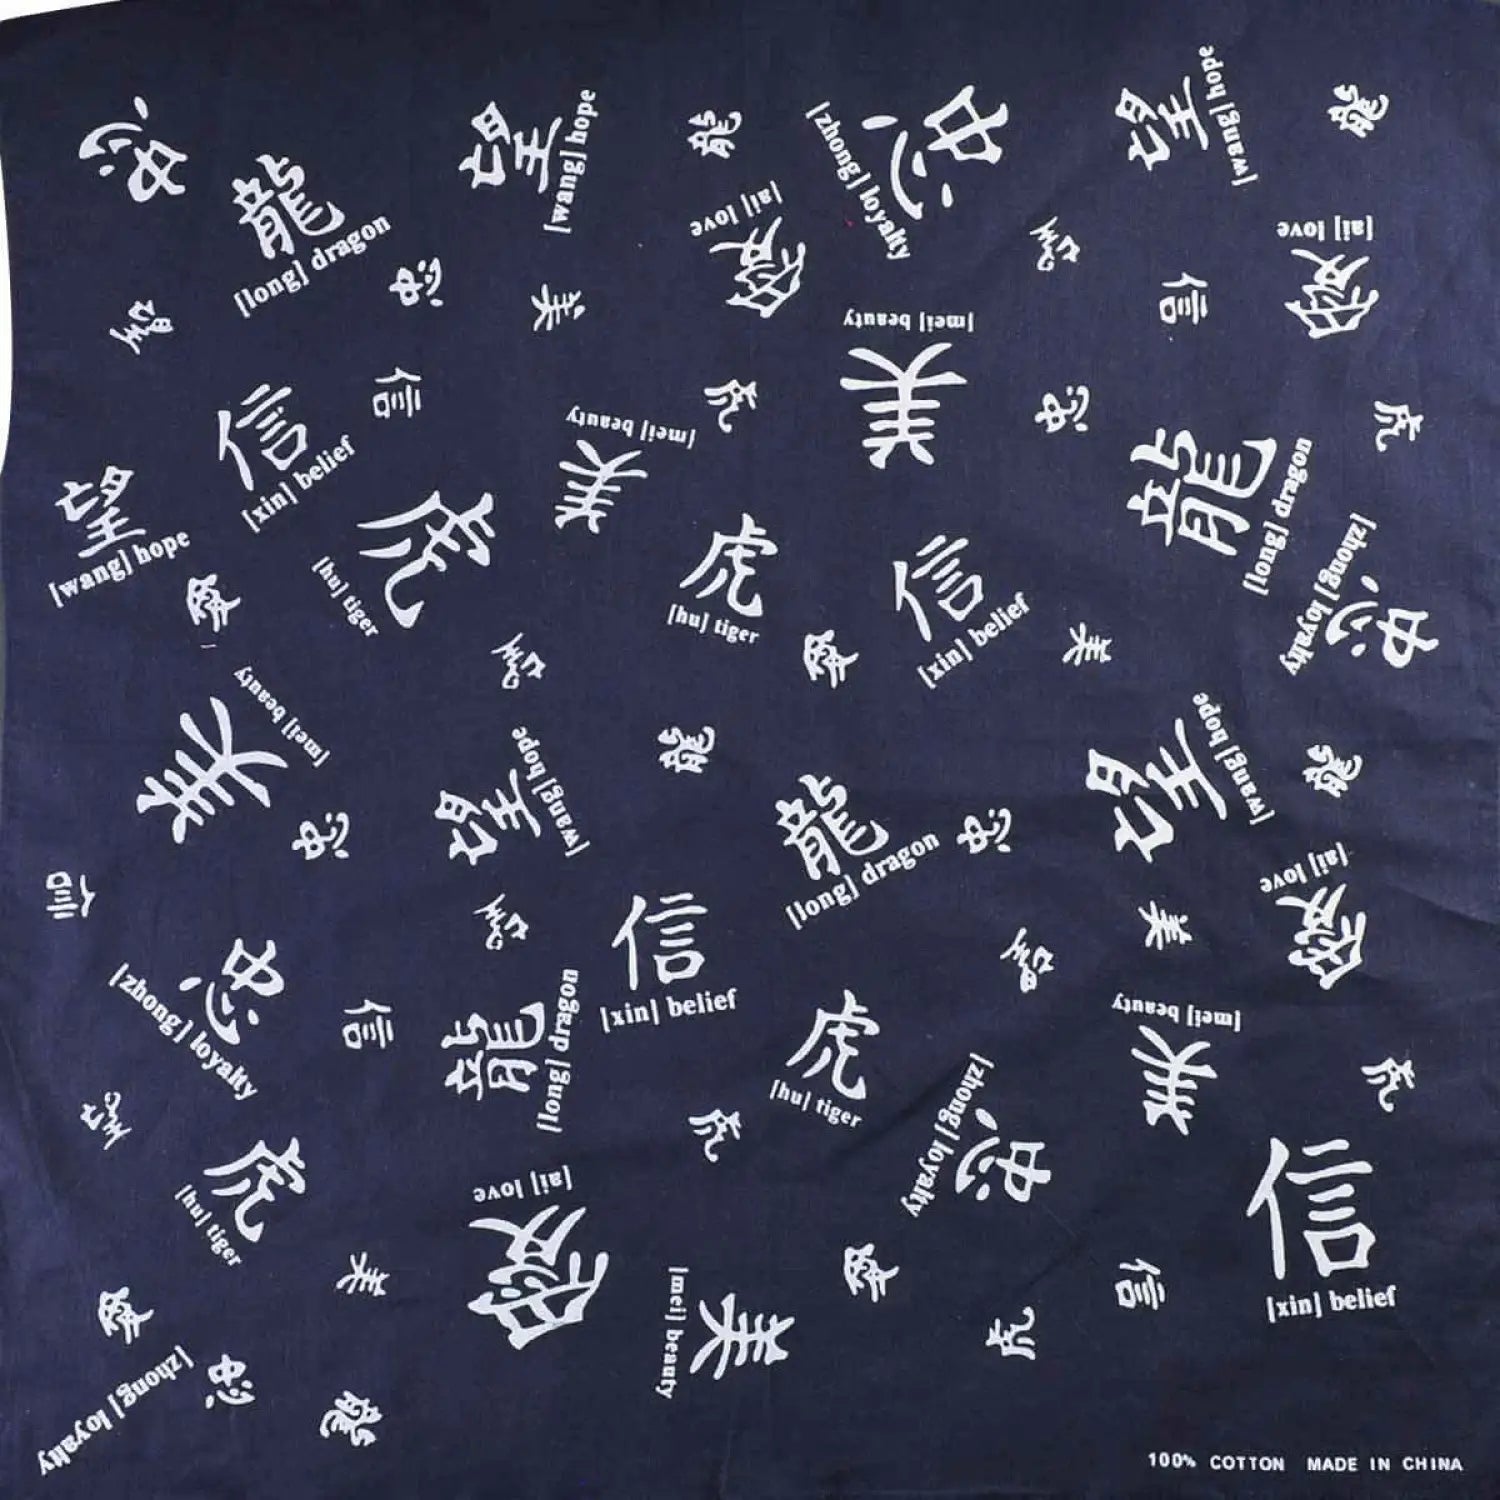 忠
龍
[long] dragon
望
[wang] hope
龍
忠
[zhong] loyalty
望
[wang] hope
龍
望
忠
美
[ai] love
愛
望
信
[ai] love
愛
信
[xin] belief
信
[mei] beauty
美
虎
[mei] beauty
美
忠
虎
望
[wang] hope
虎
[hu] tiger
虎
[hu] tiger
信
[xin] belief
龍
[long] dragon
[zhong] loyalty
忠
愛
望
愛
美
[mei] beauty
美
忠
望
[wang] hope
龍
龍
[long] dragon
忠
望
[wang] hope
龍
信
望
信
[xin] belief
望
美
[ai] love
愛
忠
[zhong] loyalty
信
龍
[long] dragon
虎
[hu] tiger
[mei] beauty
美
虎
望
虎
[hu] tiger
虎
[zhong] loyalty
忠
信
[xin] belief
[ai] love
愛
美
愛
信
愛
[zhong] loyalty
忠
龍
[mei] beauty
美
虎
100% COTTON MADE IN CHINA